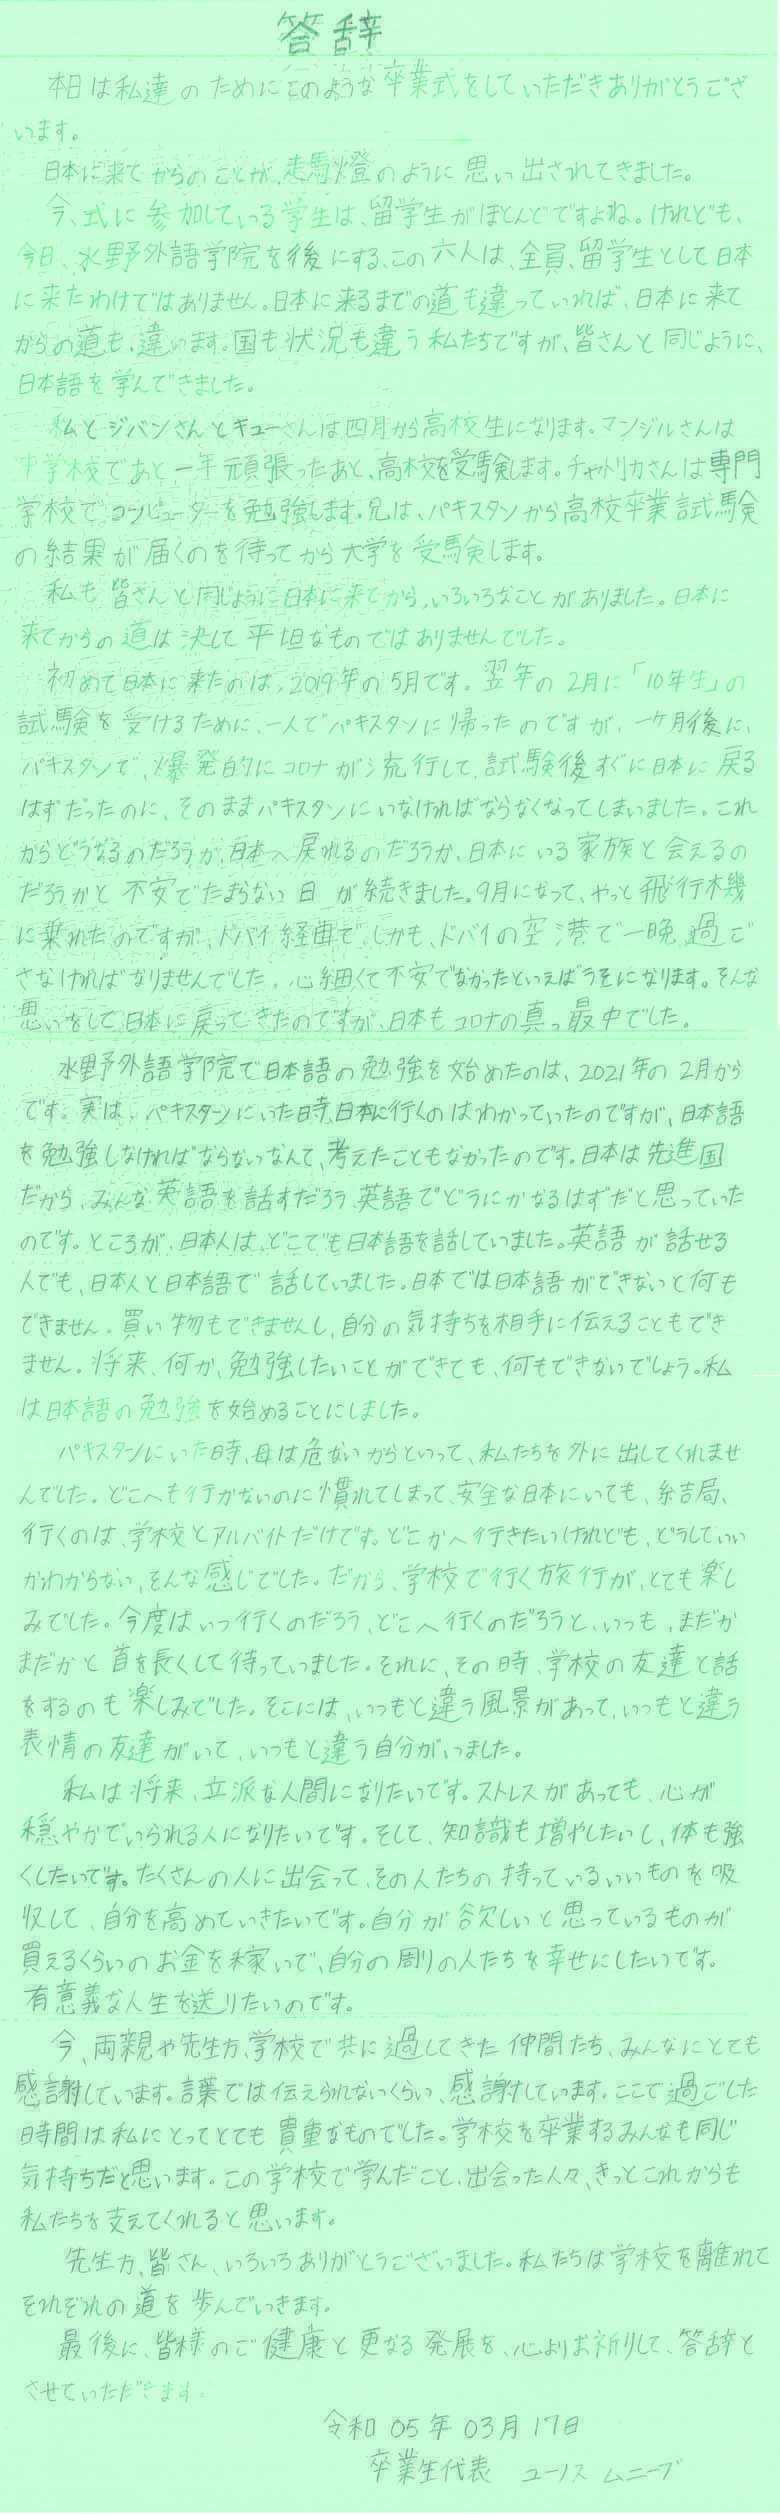 答辞
本日は私達のためにこのような卒業式をしていただきありがとうござ
います。
日本に来てからのことが、走馬燈のように思い出されてきました。
今、式に参加している学生は、留学生がほとんどですよね。けれども、
今日、水野外語学院を後にする、この六人は、全員、留学生として日本
に来たわけではありません。日本に来るまでの道も違っていれば、日本に来て
からの道も、違います。国も状況も違う私たちですが、皆さんと同じように、
日本語を学んできました。
私とジバンさんとキューさんは四月から高校生になります。マンジルさんは
中学校であと一年頑張ったあと、高校を受験します。チャトリカさんは専門
学校でコンピューターを勉強します。兄は、パキスタンから高校卒業試験
の結果が届くのを待ってから大学を受験します。
私も皆さんと同じように日本に来てから、いろいろなことがありました。日本に
来てからの道は決して平坦なものではありませんでした。
初めて日本に来たのは、2019年の5月です。翌年の2月に「10年生」の
試験を受けるために、一人でパキスタンに帰ったのですが、一ヶ月後に、
パキスタンで、爆発的にコロナが流行して、試験後すぐに日本に戻る
はずだったのに、そのままパキスタンにいなければならなくなってしまいました。これ
からどうなるのだろうか、日本へ戻れるのだろうか、日本にいる家族と会えるの
だろうかと不安でたまらない日が続きました。9月になって、やっと飛行機
に乗れたのですが、ドバイ経由で、しかも、ドバイの空港で一晩、過ご
さなければなりませんでした。心細くて不安でなかったといえばうそになります。そんな
思いをして日本に戻ってきたのですが、日本もコロナの真っ最中でした。
水野外語学院で日本語の勉強を始めたのは、2021年の2月から
です。実は、パキスタンにいた時、日本に行くのはわかっていたのですが、日本語
を勉強しなければならないなんて、考えたこともなかったのです。日本は先進国
だから、みんな英語を話すだろう、英語でどうにかなるはずだと思っていた
のです。ところが、日本人は、どこでも日本語を話していました。英語が話せる
人でも、日本人と日本語で話していました。日本では日本語ができないと何も
できません。買い物もできませんし、自分の気持ちを相手に伝えることもでき
ません。将来、何か、勉強したいことができても、何もできないでしょう。私
は日本語の勉強を始めることにしました。
パキスタンにいた時、母は危ないからといって、私たちを外に出してくれませ
んでした。どこへも行かないのに慣れてしまって、安全な日本にいても、結局、
行くのは、学校とアルバイトだけです。どこかへ行きたいけれども、どうしていい
かわからない、そんな感じでした。だから、学校で行く旅行が、とても楽し
みでした。今度はいつ行くのだろう、どこへ行くのだろうと、いつも、まだか
まだかと首を長くして待っていました。それに、その時、学校の友達と話
をするのも楽しみでした。そこには、いつもと違う風景があって、いつもと違う
表情の友達がいて、いつもと違う自分がいました。
私は将来、立派な人間になりたいです。ストレスがあっても、心が
穏やかでいられる人になりたいです。そして、知識も増やしたいし、体も強
くしたいです。たくさんの人に出会って、その人たちの持っているいいものを吸
収して、自分を高めていきたいです。自分が欲しいと思っているものが
買えるくらいのお金を稼いで、自分の周りの人たちを幸せにしたいです。
有意義な人生を送りたいのです。
今、両親や先生方、学校で共に過してきた仲間たち、みんなにとても
感謝しています。言葉では伝えられないくらい、感謝しています。ここで過ごした
時間は私にとってとても貴重なものでした。学校を卒業するみんなも同じ
気持ちだと思います。この学校で学んだこと、出会った人々、きっとこれからも
私たちを支えてくれると思います。
先生方、皆さん、いろいろありがとうございました。私たちは学校を離れて
それぞれの道を歩んでいきます。
最後に、皆様のご健康と更なる発展を、心よりお祈りして、答辞と
させていただきます。
令和05年03月17日
卒業生代表 ユーノス ムニーブ